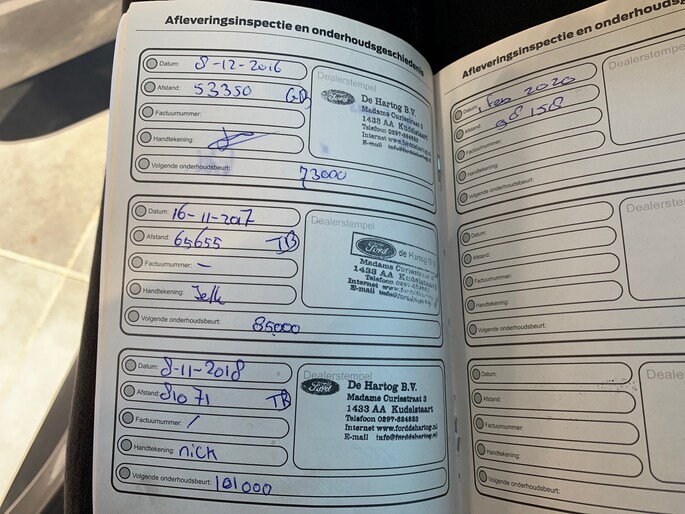 Afleveringsinspectie en onderhoudsgeschiedenis
Datum: 8-12-2016
Afstand: 53350
Factuurnummer:
Handtekening:
Volgende onderhoudsbeurt: 73000
Dealerstempel
Ford De Hartog B.V.
Madame Curiestraat 3
1433 AA Kudelstaart
Telefoon 0297-324523
Internet www.forddehartog.nl
E-mail info@forddehartog.nl
Datum: 16-11-2017
Afstand: 65655 TB
Factuurnummer: -
Handtekening: Jelle
Volgende onderhoudsbeurt: 85000
Dealerstempel
Ford de Hartog
Madame Curiestraat
1433 AA Kudelstaart
Telefoon 0297-
Internet www.ford
E-mail
Datum: 8-11-2018
Afstand: 81071 TB
Factuurnummer: /
Handtekening: nick
Volgende onderhoudsbeurt: 101000
Dealerstempel
Ford De Hartog B.V.
Madame Curiestraat 3
1433 AA Kudelstaart
Telefoon 0297-324523
Internet www.forddehartog.nl
E-mail info@forddehartog.nl
Afleveringsinspectie en onderhoudsgeschied
Datum: Feb 2020
Afstand: 98 158
Factuurnummer:
Handtekening:
Volgende onderhoudsbeurt:
Dealerstemp
Datum:
Afstand:
Factuurnummer:
Handtekening:
Volgende onderhoudsbeurt:
Dealerste
Datum:
Afstand:
Factuurnummer:
Handtekening:
Volgende onderhoudsbeurt:
Deale